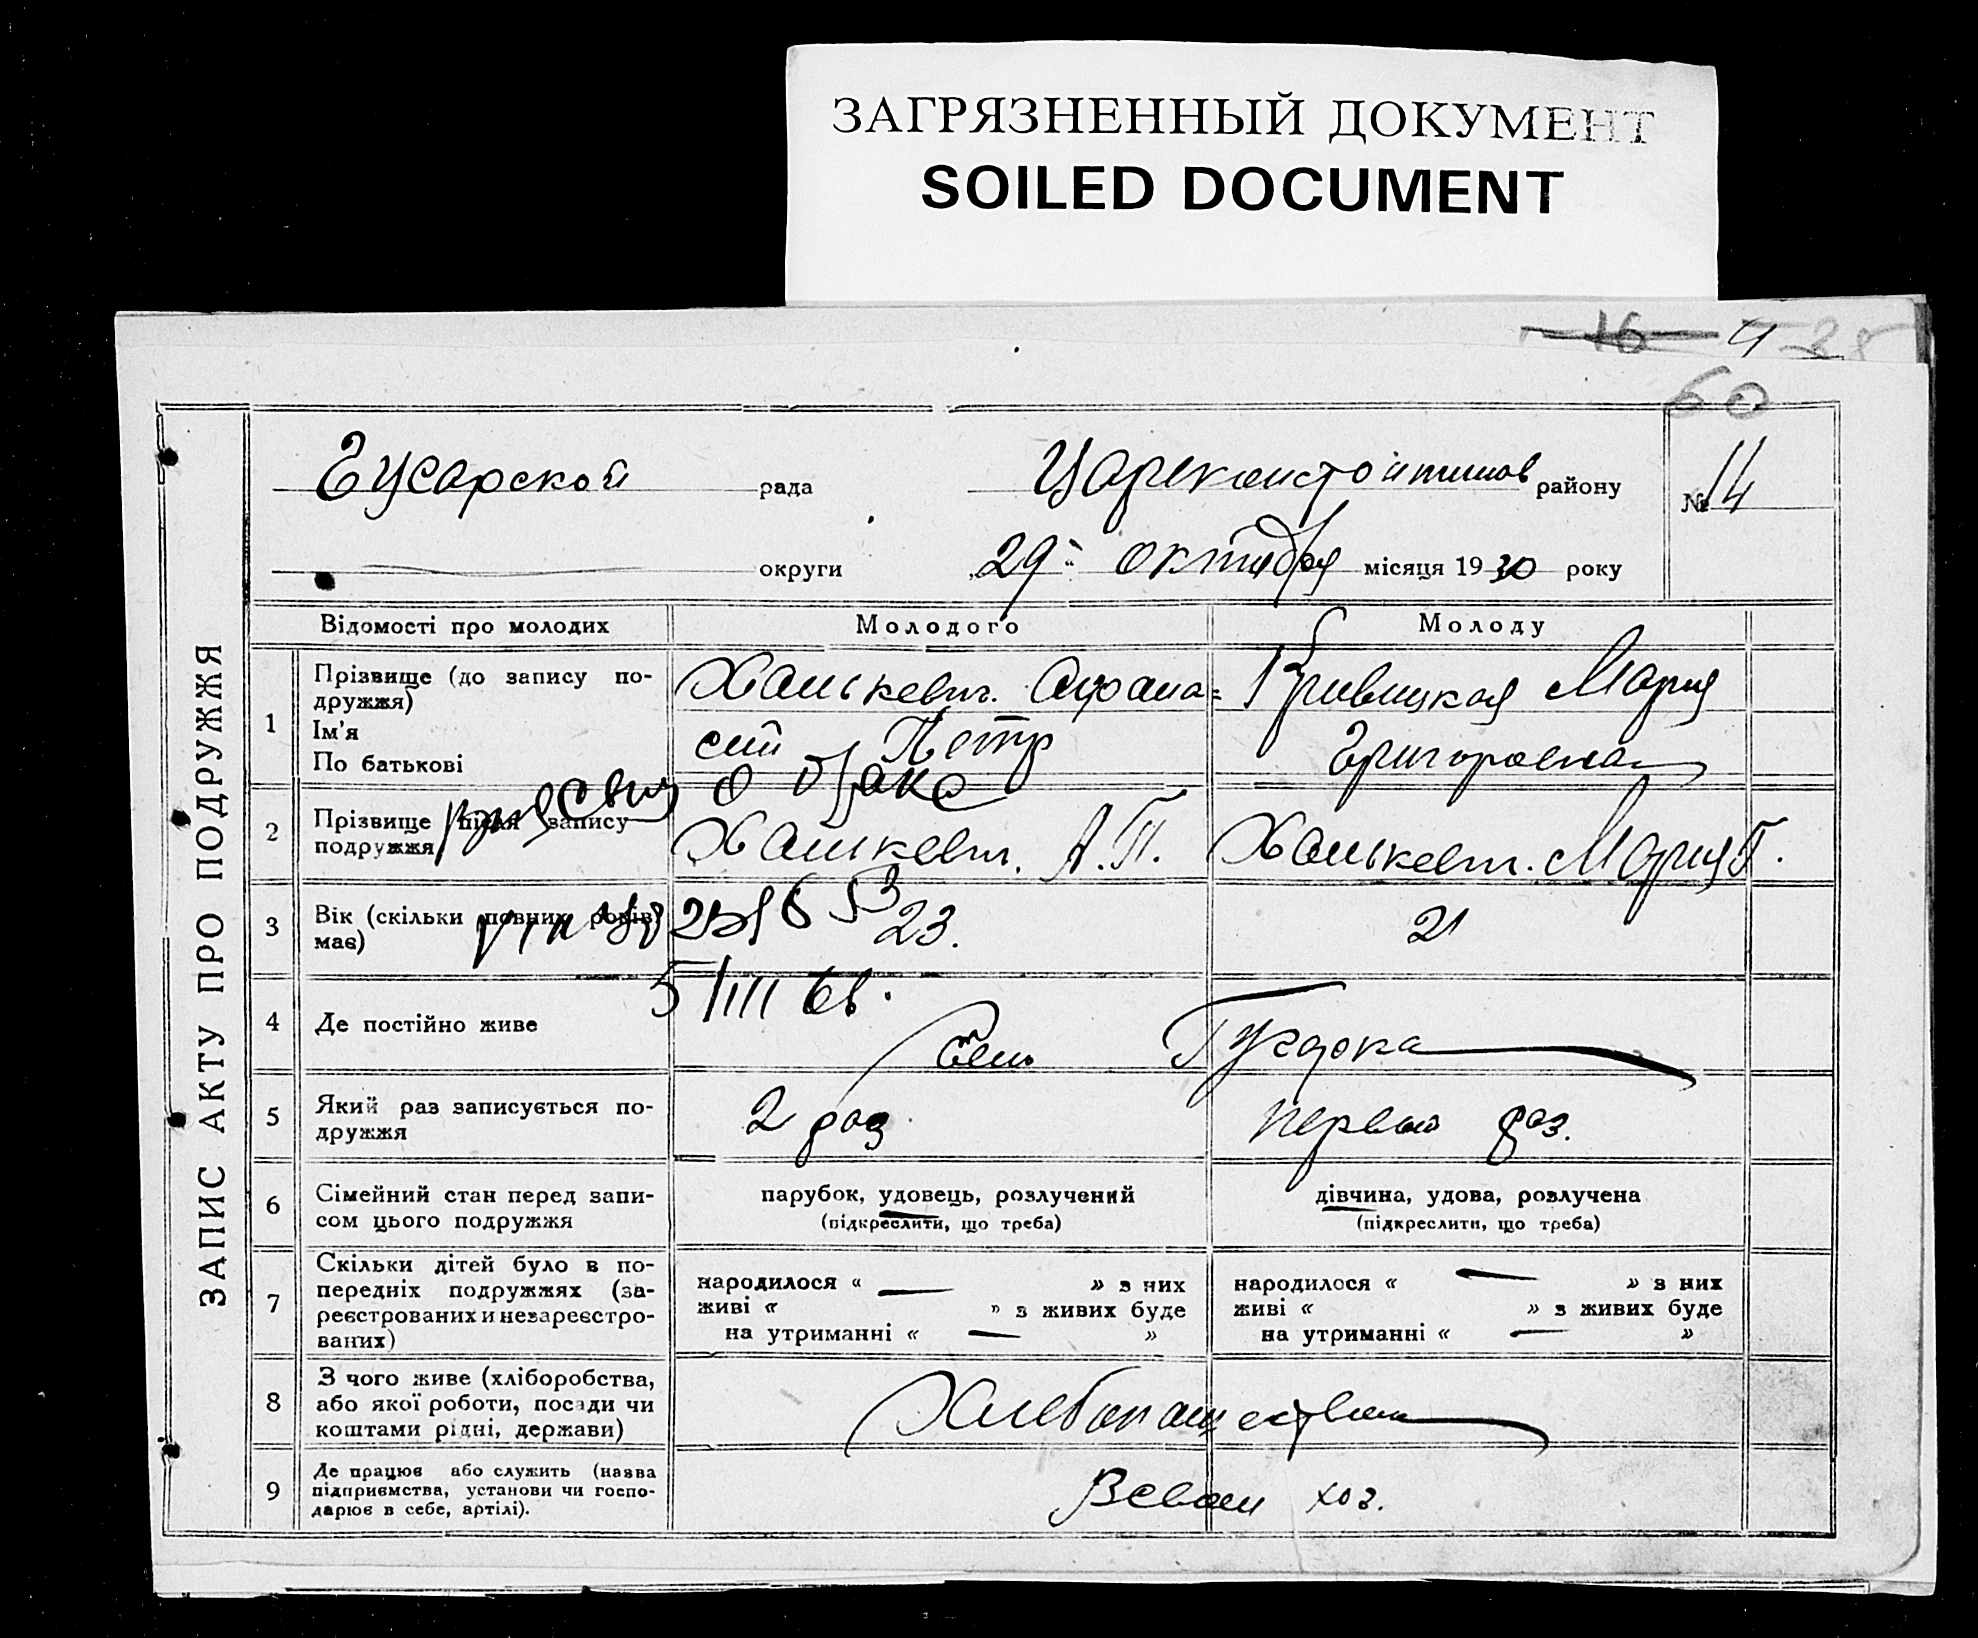 ЗАГРЯЗНЕННЫЙ ДОКУМЕНТ
SOILED DOCUMENT
16
60
ЗАПИС АКТУ ПРО ПОДРУЖЖЯ
Гусарской рада района Цареконстантинов району
№ 14
округи „29" октября місяця 1930 року
Відомості про молодих
Молодого
Молоду
1
Прізвище (до запису по-
дружжя)
Ім'я
По батькові
Ханькевич. Афана=
сий Петр
Кривицкая Мария
Григороевна
о браке
2
Прізвище після запису
подружжя
Ханкевич. А.П.
Ханькевич. Мария Г.
3
Вік (скільки повних років
має)
23.
21
5/III
4
Де постійно живе
Село Гусарка
5
Який раз записується по-
дружжя
2 раз
первый раз.
6
Сімейний стан перед запи-
сом цього подружжя
парубок, удовець, розлучений
(підкреслити, що треба)
дівчина, удова, розлучена
(підкреслити, що треба)
7
Скільки дітей було в по-
передніх подружжях (за-
реєстрованих и незареєстро-
ваних)
народилося « — » з них
живі « » з живих буде
на утриманні « — »
народилося « — » з них
живі « » з живих буде
на утриманні « — »
8
З чого живе (хліборобства,
або якої роботи, посади чи
коштами рідні, держави)
Хлебопашеством
9
Де працює або служить (назва
підприємства, установи чи госпо-
дарює в себе, артілі).
Всвоем хоз.